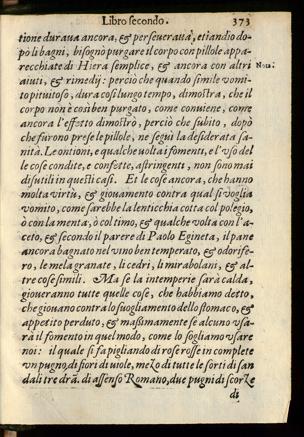 Libro secondo. 373
tione duraua ancora, & perseueraua, etiandio do-
pò li bagni, bisognò purgare il corpo con pillole appa-
recchiate di Hiera semplice, & ancora con altri
Nota.
aiuti, & rimedij: perciò che quando simile vomi-
to pituitoso, dura cosi lungo tempo, dimostra, che il
corpo non è cosi ben purgato, come conuiene, come
ancora l'effetto dimostrò, perciò che subito, dopò
che furono prese le pillole, ne seguì la desiderata sa-
nità. Le ontioni, e qualche volta i fomenti, e l'vso del
le cose condite, e confette, astringenti, non sono mai
disutili in questi casi. Et le cose ancora, che hanno
molta virtù, & giouamento contra qual si voglia
vomito, come sarebbe la lenticchia cotta col polegio,
ò con la menta, ò col timo, & qualche volta con l'a-
ceto, & secondo il parere di Paolo Egineta, il pane
ancora bagnato nel vino ben temperato, & odorife-
ro, le mela granate, li cedri, li mirabolani, & al-
tre cose simili. Ma se la intemperie sarà calda,
gioueranno tutte quelle cose, che habbiamo detto,
che giouano contra lo suogliamento dello stomaco, &
appetito perduto, & massimamente se alcuno vsa-
rà il fomento in quel modo, come lo sogliamo vsare
noi: il quale si fa pigliando di rose rosse in complete
vn pugno, di fiori di uiole, mezo di tutte le sorti di san
dali tre dra. di assenso Romano, due pugni di scorze
di